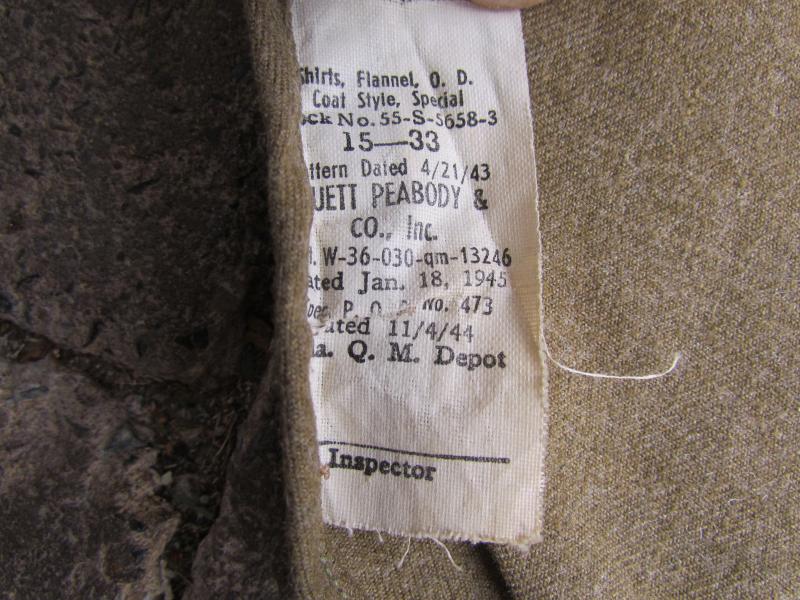 Shirts, Flannel, O. D.
Coat Style, Special
ock No. 55-S-5658-3
15—33
ttern Dated 4/21/43
UETT PEABODY &
CO., Inc.
. W-36-030-qm-13246
ated Jan. 18, 1945
No. 473
ated 11/4/44
a. Q. M. Depot
Inspector